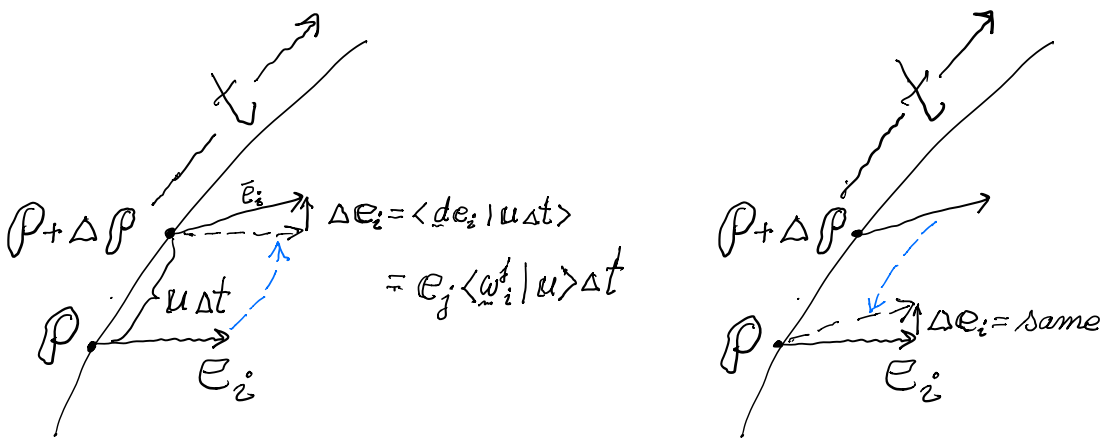 t
ē_i
P+ΔP
Δe_i = <d̲e_i | uΔt>
= e_j <ω̲^j_i | u> Δt
uΔt
P
e_i
t
P+ΔP
Δe_i = same
P
e_i